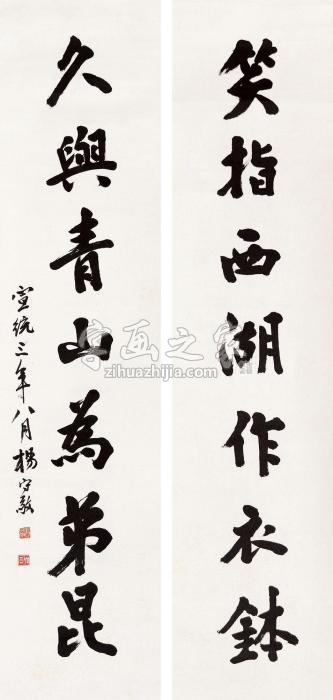 笑指西湖作衣鉢
久與青山為弟昆
宣統三年八月楊守敬
字画之家
zihuazhijia.com